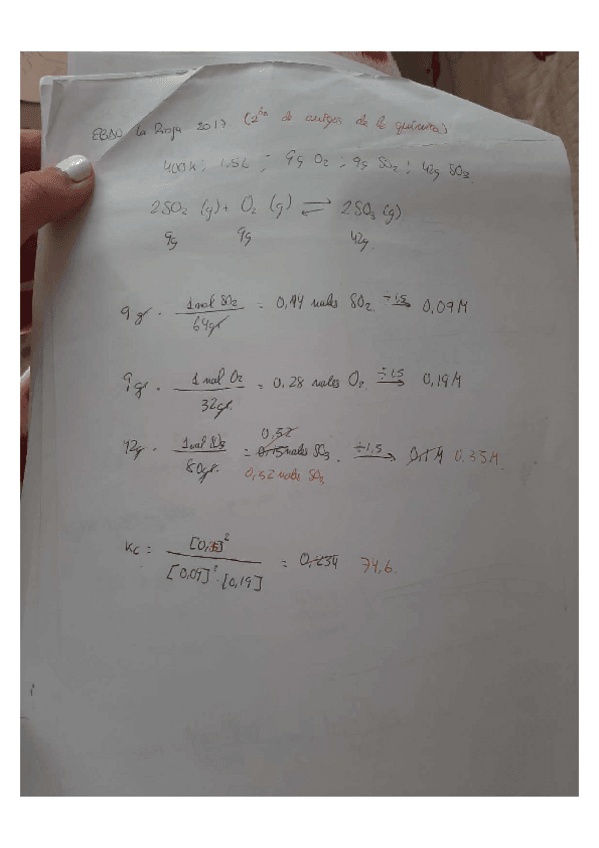 EBAU La Rioja 2017 (2ón de amigos de la química)
400K; 1,5L; 9g O2; 9g SO2; 42g SO3
2SO2 (g) + O2 (g) ⇌ 2SO3 (g)
9g 9g 42g
9 gr · 1 mol SO2 / 64gr = 0,14 moles SO2 ÷1,5 → 0,09 M
9 gr · 1 mol O2 / 32gr = 0,28 moles O2 ÷1,5 → 0,19 M
0,52
42g · 1 mol SO3 / 80gr = 0,15 moles SO3 ÷1,5 → 0,1 M 0,35M
0,52 moles SO3
Kc = [0,35]² / [0,09]² · [0,19] = 0,234 74,6